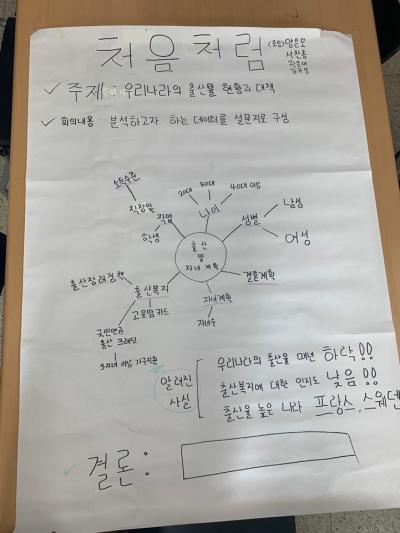 처음처럼
(조장) 양은모
✓ 주제 : 우리나라의 출산율 현황과 대책
✓ 회의내용 : 분석하고자 하는 데이터를 설문지로 구성.
소득수준
직장인
직업
학생
20대
30대
40대 이상
나이
성별
남성
여성
출산
및
자녀 계획
결혼계획
자녀계획
자녀수
출산장려정책
출산복지
고운맘카드
국민연금
출산 크레딧
3자녀 이상 가구지원
알려진
사실
우리나라의 출산율 매년 하락!!
출산복지에 대한 인지도 낮음!!
출산율 높은 나라 프랑스, 스웨덴
✓ 결론 :